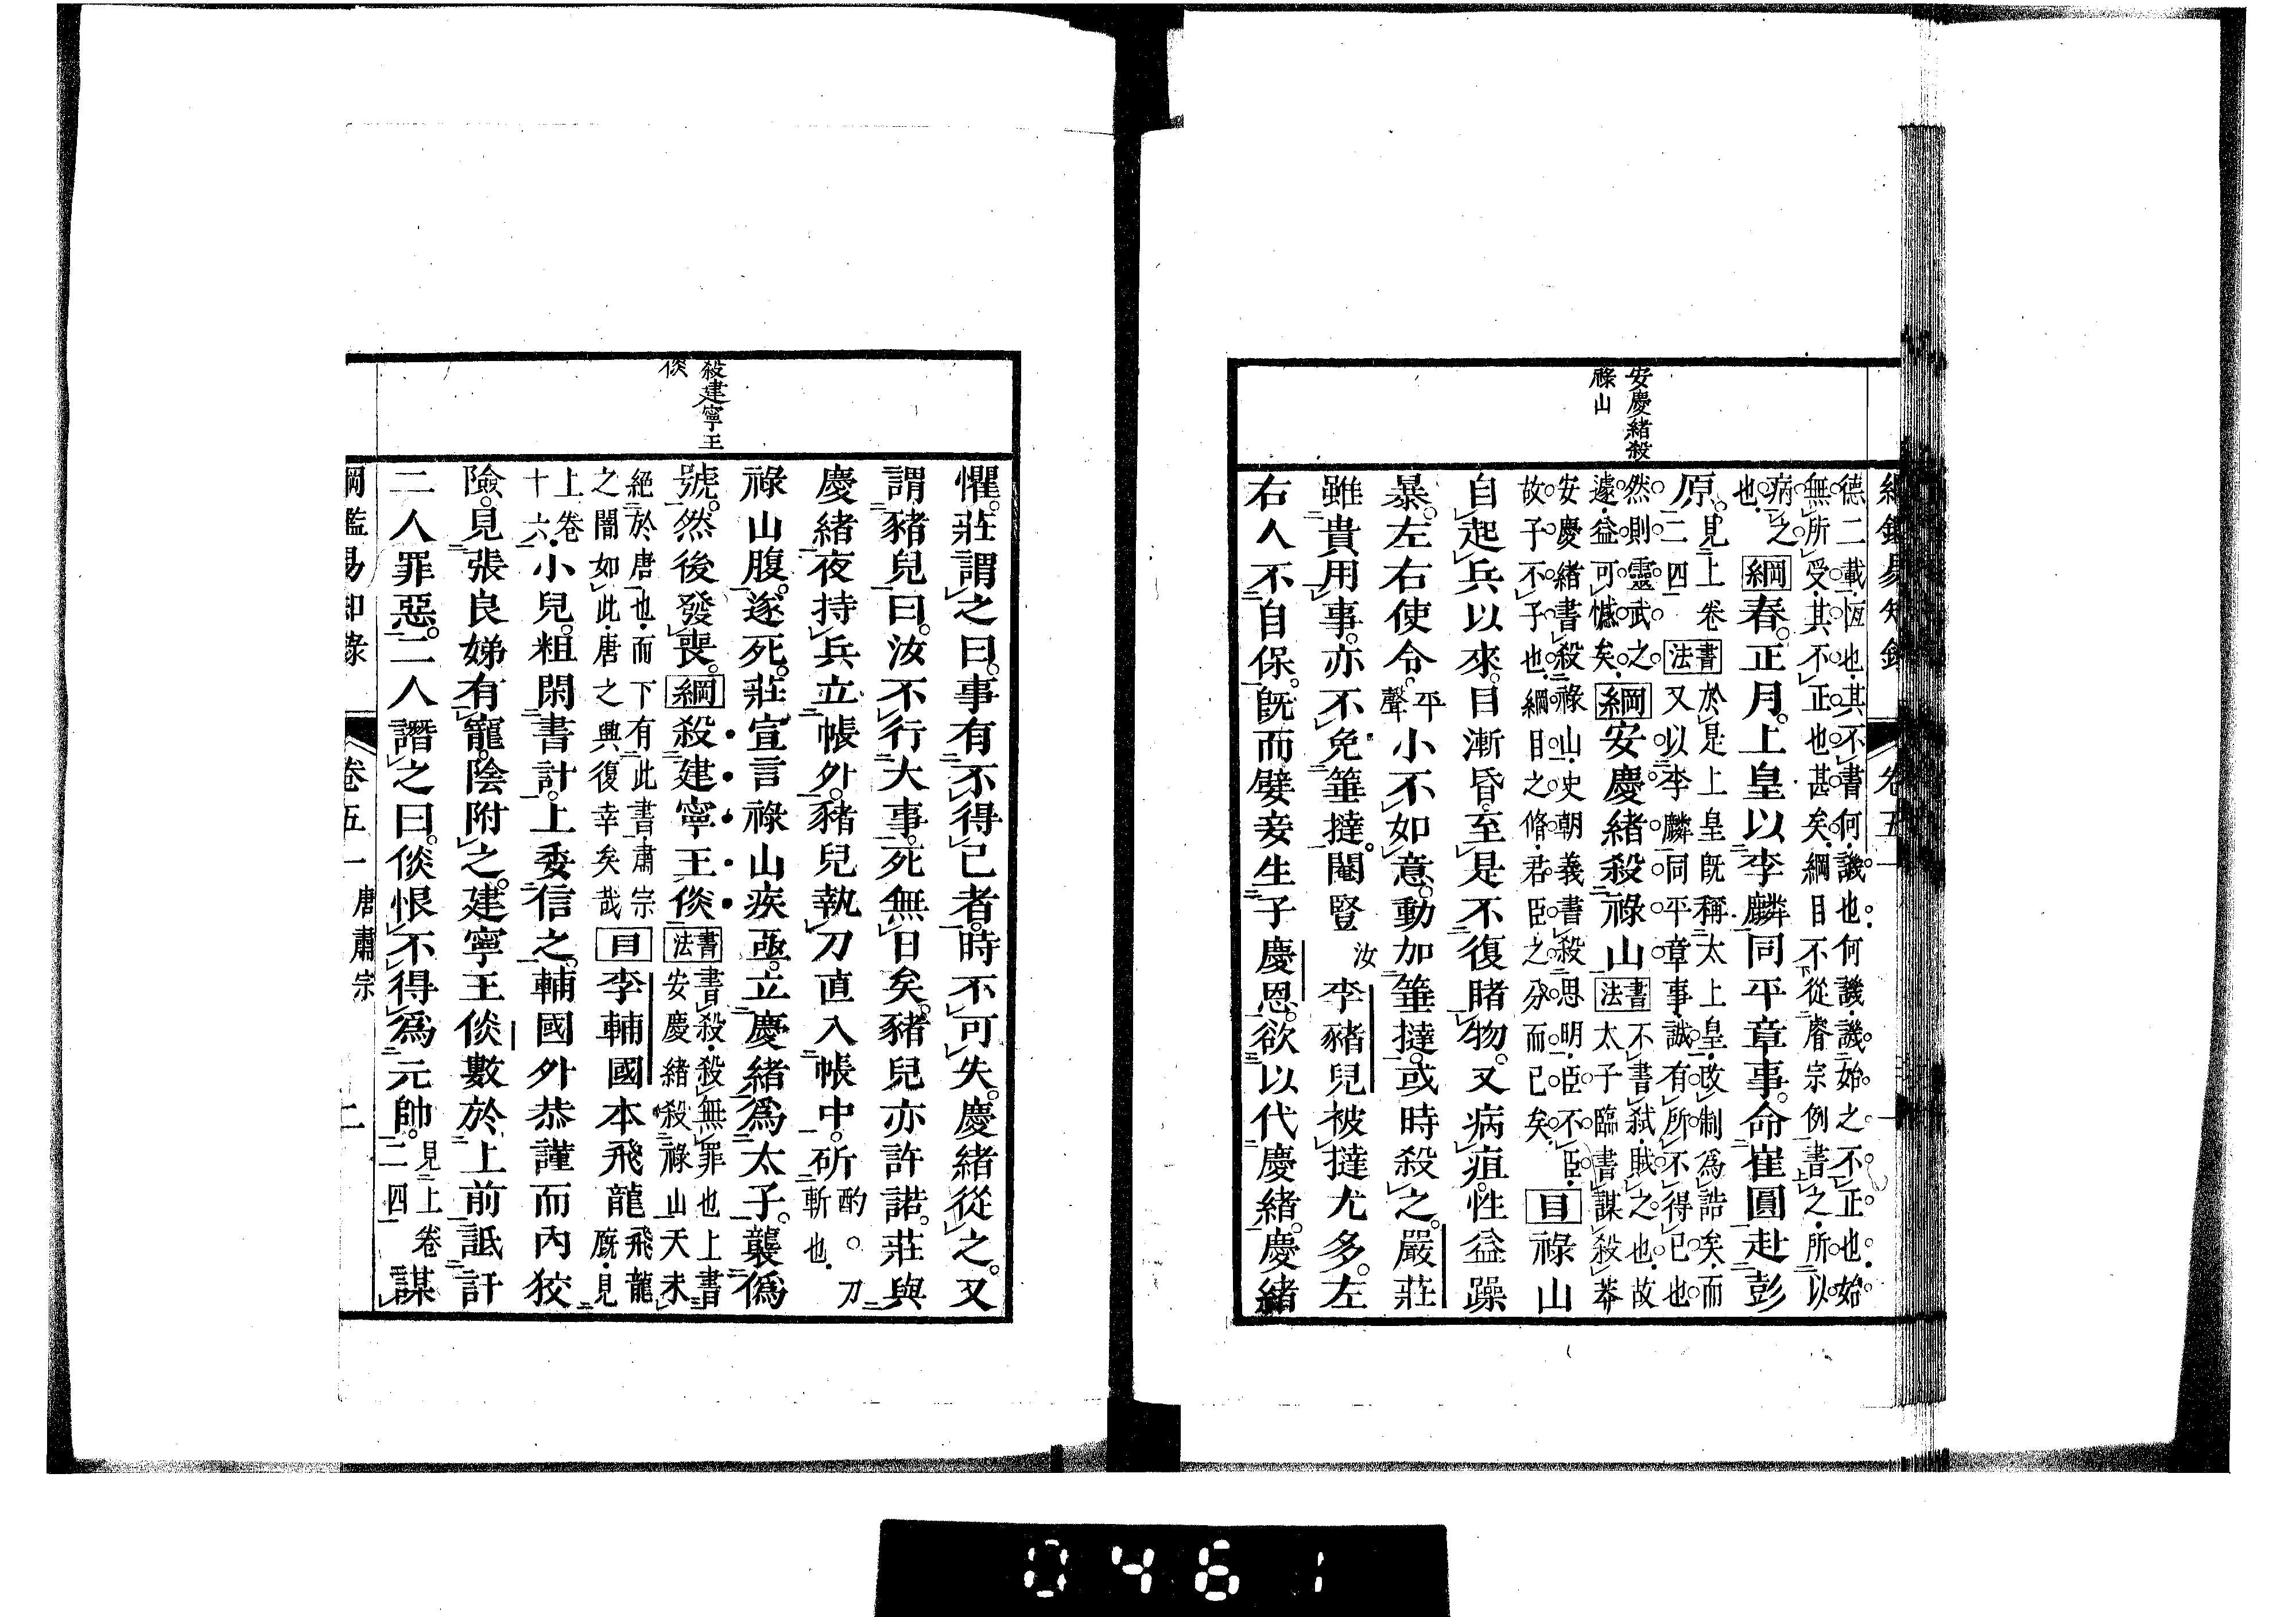 安慶緒殺
祿山
德二載恆也其不書何譏也何譏譏始之不正也始
無所受其不正也甚矣綱目不從睿宗例書之所以
病之
也
綱春正月上皇以李麟同平章事命崔圓赴彭
原
見上卷
二四
書法
於是上皇既稱太上皇改制為誥矣而
又以李麟同平章事誠有所不得已也
然則靈武之
遽益可憾矣
綱安慶緒殺祿山
書法
不書弑賊之也故
太子臨書謀殺莽
安慶緒書殺祿山史朝義書殺思明臣不臣
故子不子也綱目之脩君臣之分而已矣
目祿山
自起兵以來目漸昏至是不復睹物又病疽性益躁
暴左右使令
平
聲
小不如意動加箠撻或時殺之嚴莊
雖貴用事亦不免箠撻閹豎
汝
李豬兒被撻尤多左
右人不自保既而嬖妾生子慶恩欲以代慶緒慶緒
殺建寧王
倓
懼莊謂之曰事有不得已者時不可失慶緒從之又
謂豬兒曰汝不行大事死無日矣豬兒亦許諾莊與
慶緒夜持兵立帳外豬兒執刀直入帳中斫
酌刀
斬也
祿山腹遂死莊宣言祿山疾亟立慶緒為太子襲偽
號然後發喪綱殺建寧王倓
書法
書殺殺無罪也上書
安慶緒殺祿山天未
絕於唐也而下有此書肅宗
之闇如此唐之興復幸矣哉
目李輔國本飛龍
飛龍
廐見
上卷
十六
小兒粗閑書計上委信之輔國外恭謹而內狡
險見張良娣有寵陰附之建寧王倓數於上前詆訐
二人罪惡二人譖之曰倓恨不得為元帥
見上卷
二四
謀
綱鑑易知錄 卷五一 唐肅宗 二